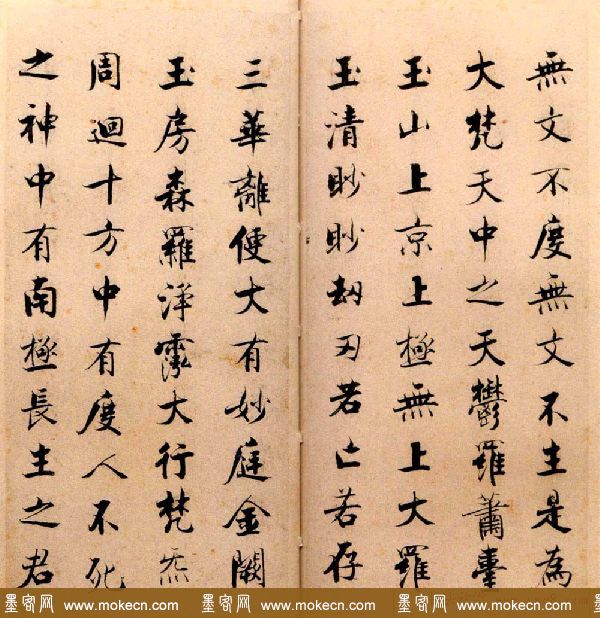 無文不度無文不生是為
大梵天中之天鬱羅蕭臺
玉山上京上極無上大羅
玉清眇眇劫刃若亡若存
三華離便大有妙庭金闕
玉房森羅淨霐大行梵炁
周迴十方中有度人不死
之神中有南極長生之君
墨客网 www.mokecn.com 墨客网 www.mokecn.com 墨客网 www.mokecn.com